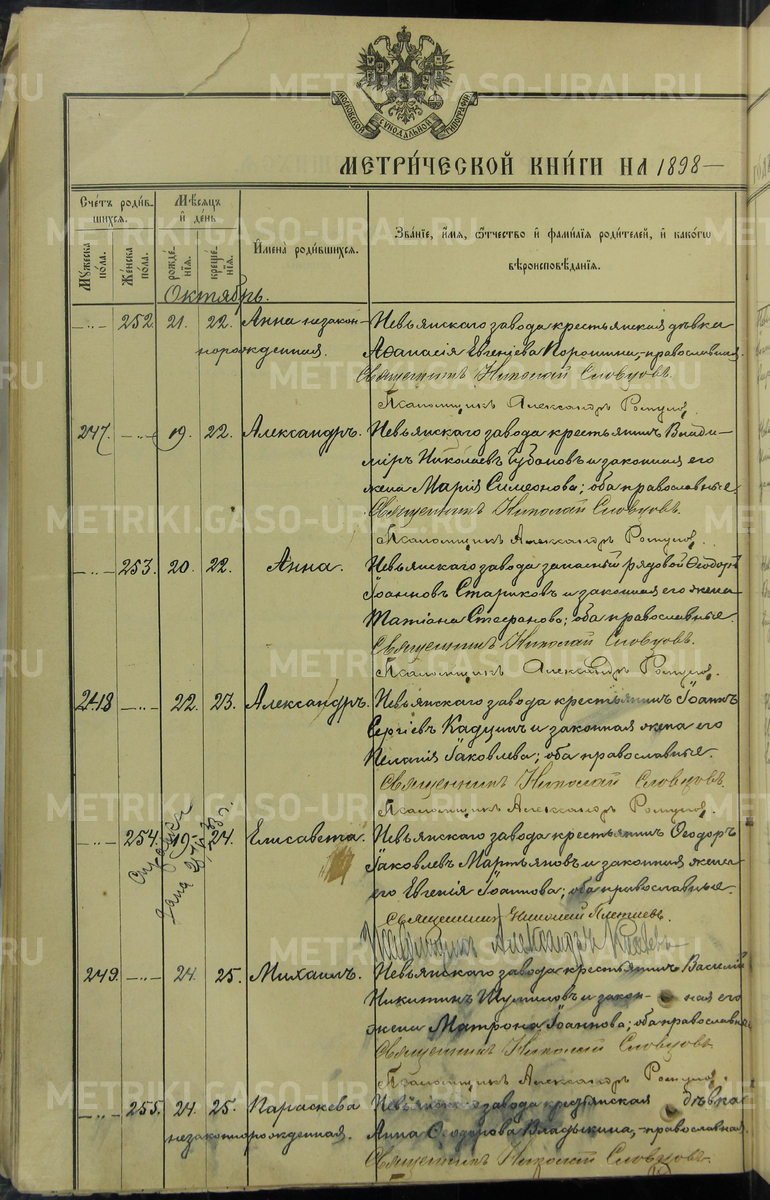 МОСКОВСКОЙ СѴНОДАЛЬНОЙ ТИПОГРАФІИ
МЕТРИ́ЧЕСКОЙ КНИ́ГИ НА 1898 —
Сче́тъ роди́в-
шихся.
Мѣ́сяцъ
и҆ де́нь
Мꙋ́жеска
по́ла.
Же́нска
по́ла.
рожде́-
нїѧ.
креще́-
нїѧ.
И҆мена̀ роди́вшихся.
Зва́нїе, и҆́мѧ, ѻ҆́тчество и҆ фами́лїѧ роди́телей, и҆ како́гѡ
вѣроисповѣ́данїѧ.
Октябрь.
—„— 252. 21. 22. Анна незакон- Невьянскаго завода крестьянская дѣвка
норожденная. Аѳанасія Евгеніева Поронина, – православная.
Священникъ Николай Словцовъ.
Псаломщикъ Александръ
247. —„— 19. 22. Александръ. Невьянскаго завода крестьянинъ Влади-
міръ Николаевъ Губановъ и законная его
жена Марія Симеонова; оба православные.
Священникъ Николай Словцовъ.
Псаломщикъ Александръ
—„— 253. 20. 22. Анна. Невьянскаго завода запасный рядовой Ѳеодоръ
Іоанновъ Стариковъ и законная его жена
Татіана Стефанова; оба православные.
Священникъ Николай Словцовъ.
Псаломщикъ Александръ
248 —„— 22. 23. Александръ. Невьянскаго завода крестьянинъ Іоаннъ
Сергіевъ Кадцинъ и законная жена его
Пелагія Іаковлева; оба православные.
Священникъ Николай Словцовъ.
Псаломщикъ Александръ
—„— 254. 19. 24. Елисавета. Невьянскаго завода крестьянинъ Ѳеодоръ
Іаковлевъ Мартьяновъ и законная жена
его Евгенія Іоаннова; оба православные.
Справка
дана
Священникъ Николай
Псаломщикъ Александръ
249. —„— 24. 25. Михаилъ. Невьянскаго завода крестьянинъ Василій
Никитинъ Шумиловъ и закон- ная его
жена Матрона Іоаннова; оба православные
Священникъ Николай Словцовъ
Псаломщикъ Александръ
—„— 255. 24. 25. Параскева Невьянскаго завода крестьянская дѣвка
незаконнорожденная. Анна Ѳеодорова Владыкина, – православная.
Священникъ Николай Словцовъ
METRIKI.GASO-URAL.RU